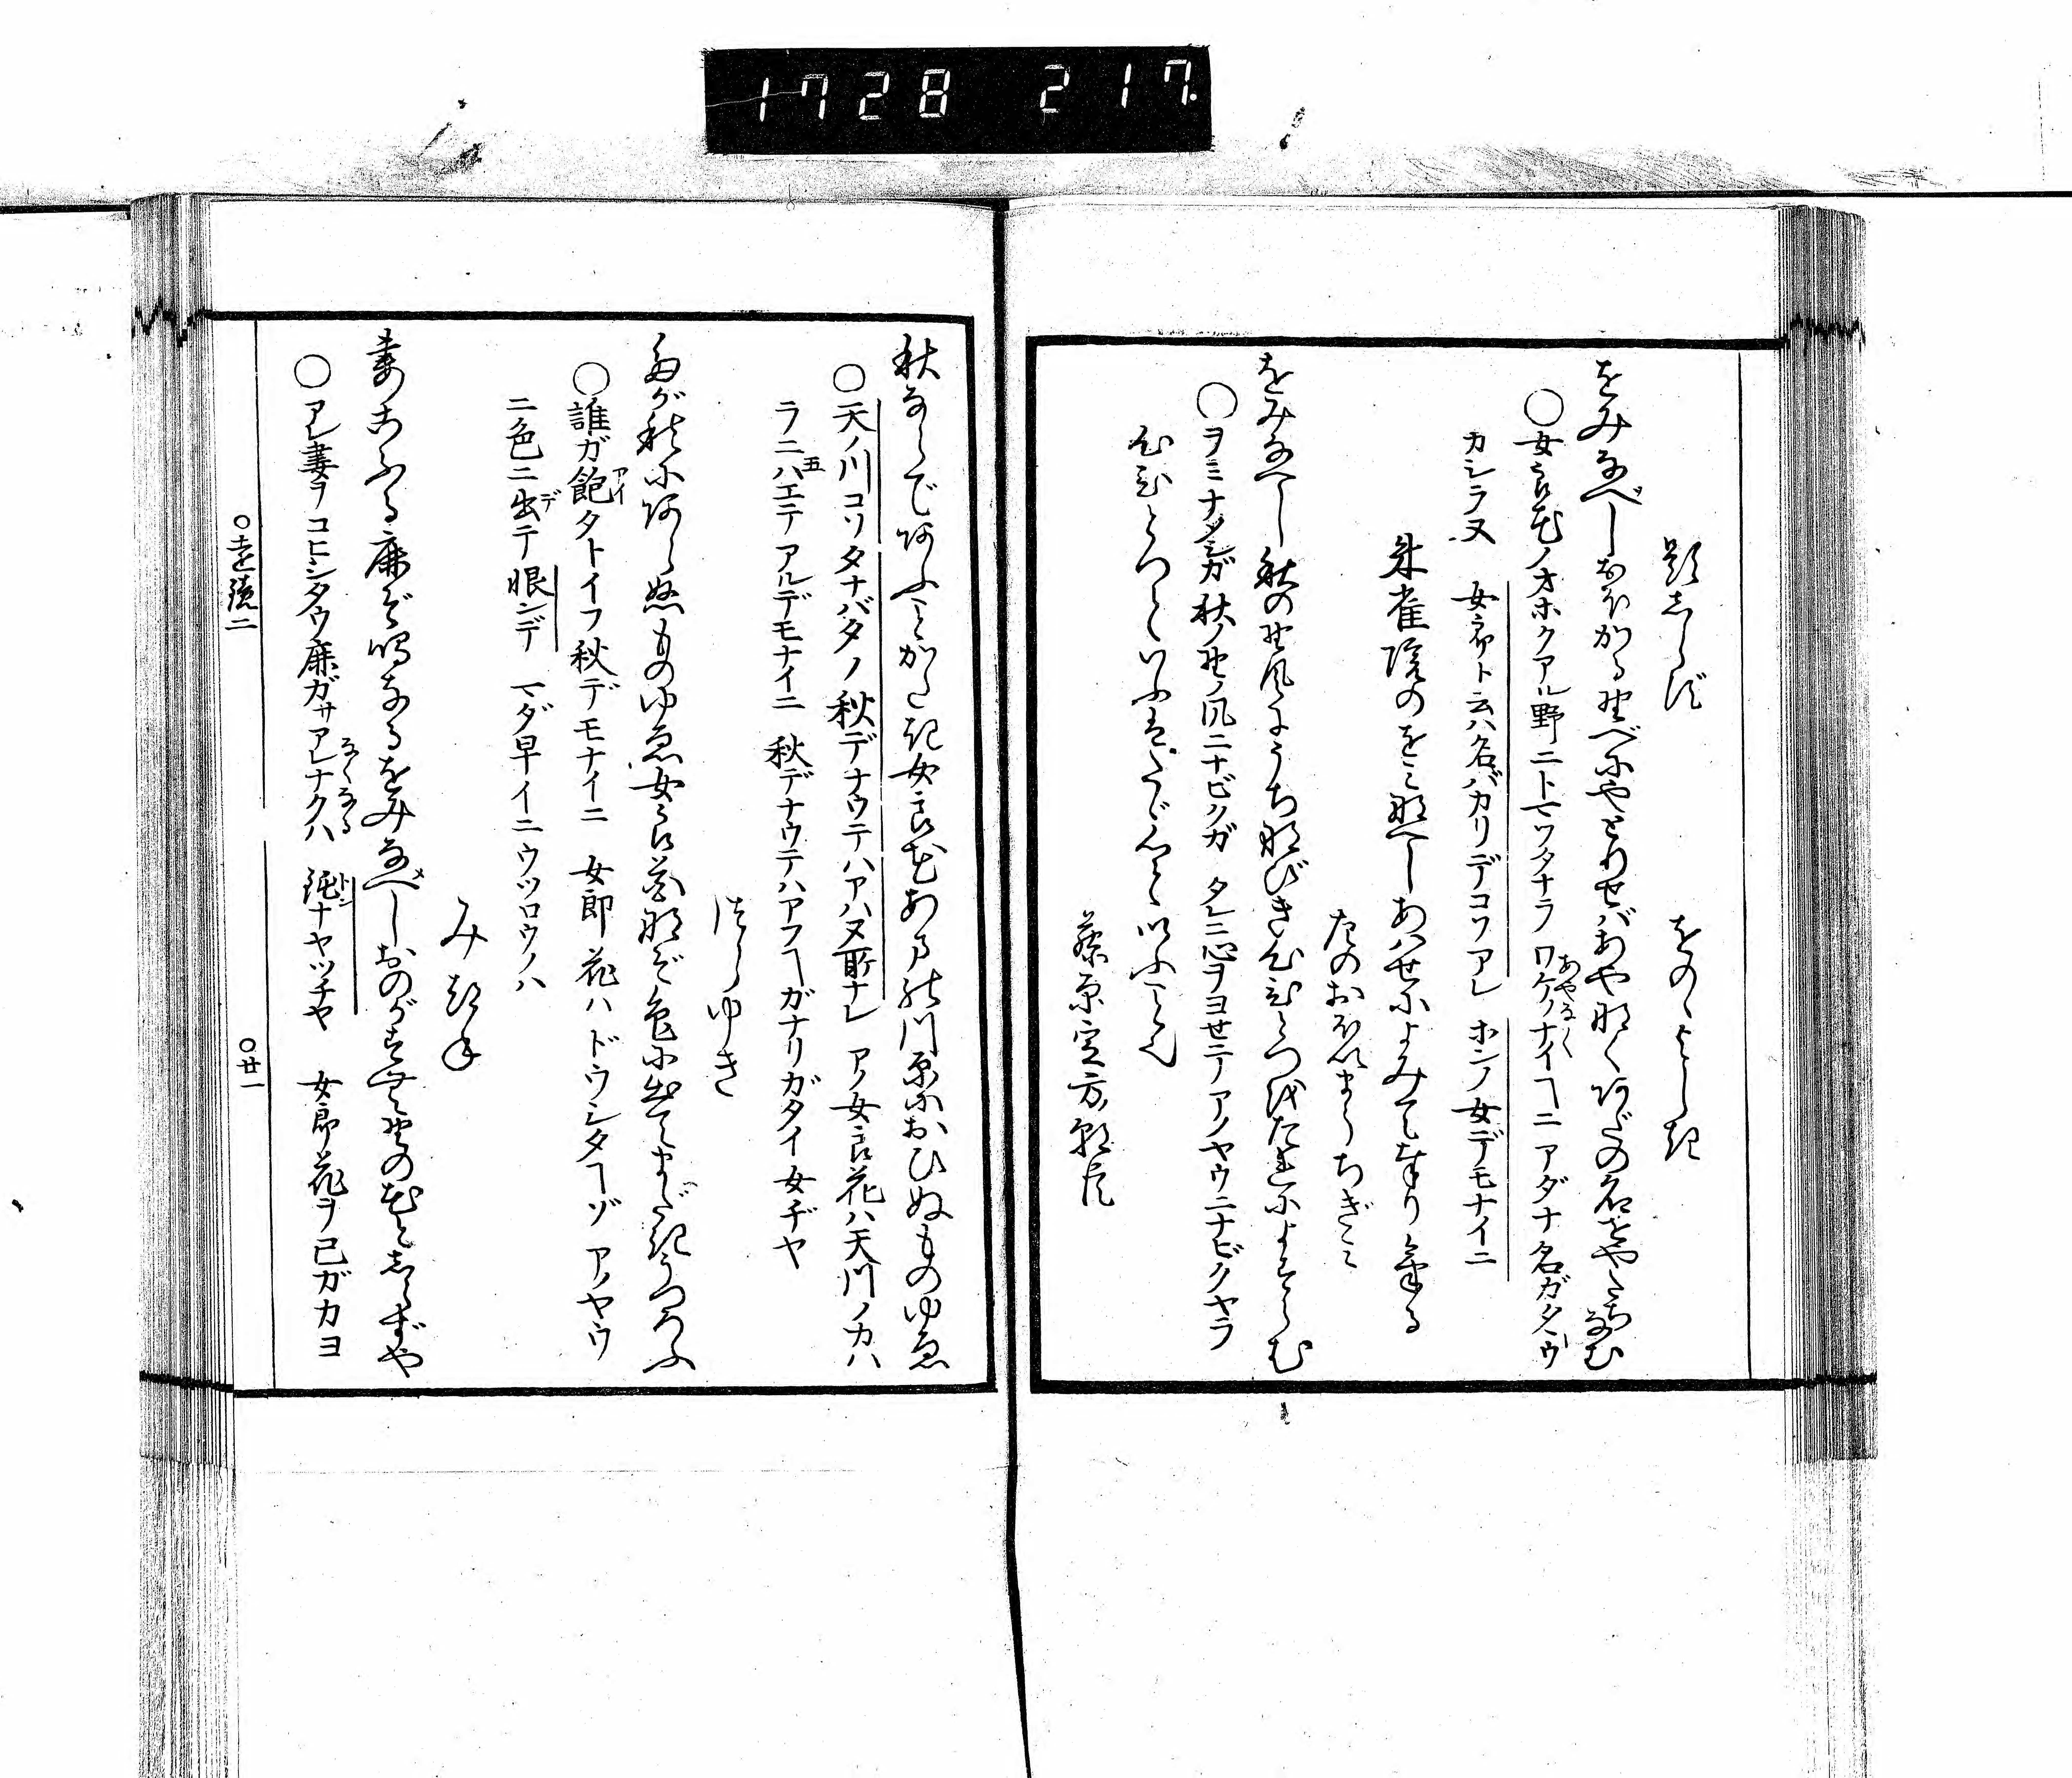 1728 217
題しらず　をのゝよしき
をみなべしおほかる野べにやどりせばあやなくあだの名をやたちなむ
○女良花ノオホクアル野ニトマツタナラ ワケノナイヿニ アダナ名ガタタウ
カシラヌ 女郎ト云ハ名バカリデコソアレ ホンノ女デモナイニ
あやなく
朱雀院のをみなへしあはせによみて奉りける
左のおほいまうちぎみ
をみなへし秋の野風にうちなびき心ひとつをたれによすらむ
○ヲミナメシガ秋ノ野ノ風ニナビクガ タレニ心ヲヨセテアノヤウニナビクヤラ
心ひとつといふはたゞ心といふこと也
藤原定方朝臣
秋ならであふことかたき女良花あまの川原におひぬものゆゑ
○天ノ川コソタナバタノ秋デナウテハアハヌ所ナレ アノ女良花ハ天川ノカハ
ラニハエテアルデモナイニ 秋デナウテハアフヿガナリガタイ女ヂヤ
五
つらゆき
たが秋にあらぬものゆゑ女良花なぞ色に出てまだきうつろふ
○誰ガ飽タトイフ秋デモナイニ 女郎花ハドウシタヿゾ アノヤウ
アイ
ニ色ニ出テ恨ンデ マダ早イニウツロウノハ
デ
みつね
妻こふる鹿ぞ鳴なるをみなべしおのがすむ野の花としらずや
○アレ妻ヲコヒシタウ鹿ガサアレナクハ 鈍ナヤツヂヤ 女郎花ヲ己ガカヨ
なくなる
トン
○遠鏡二
○廿一